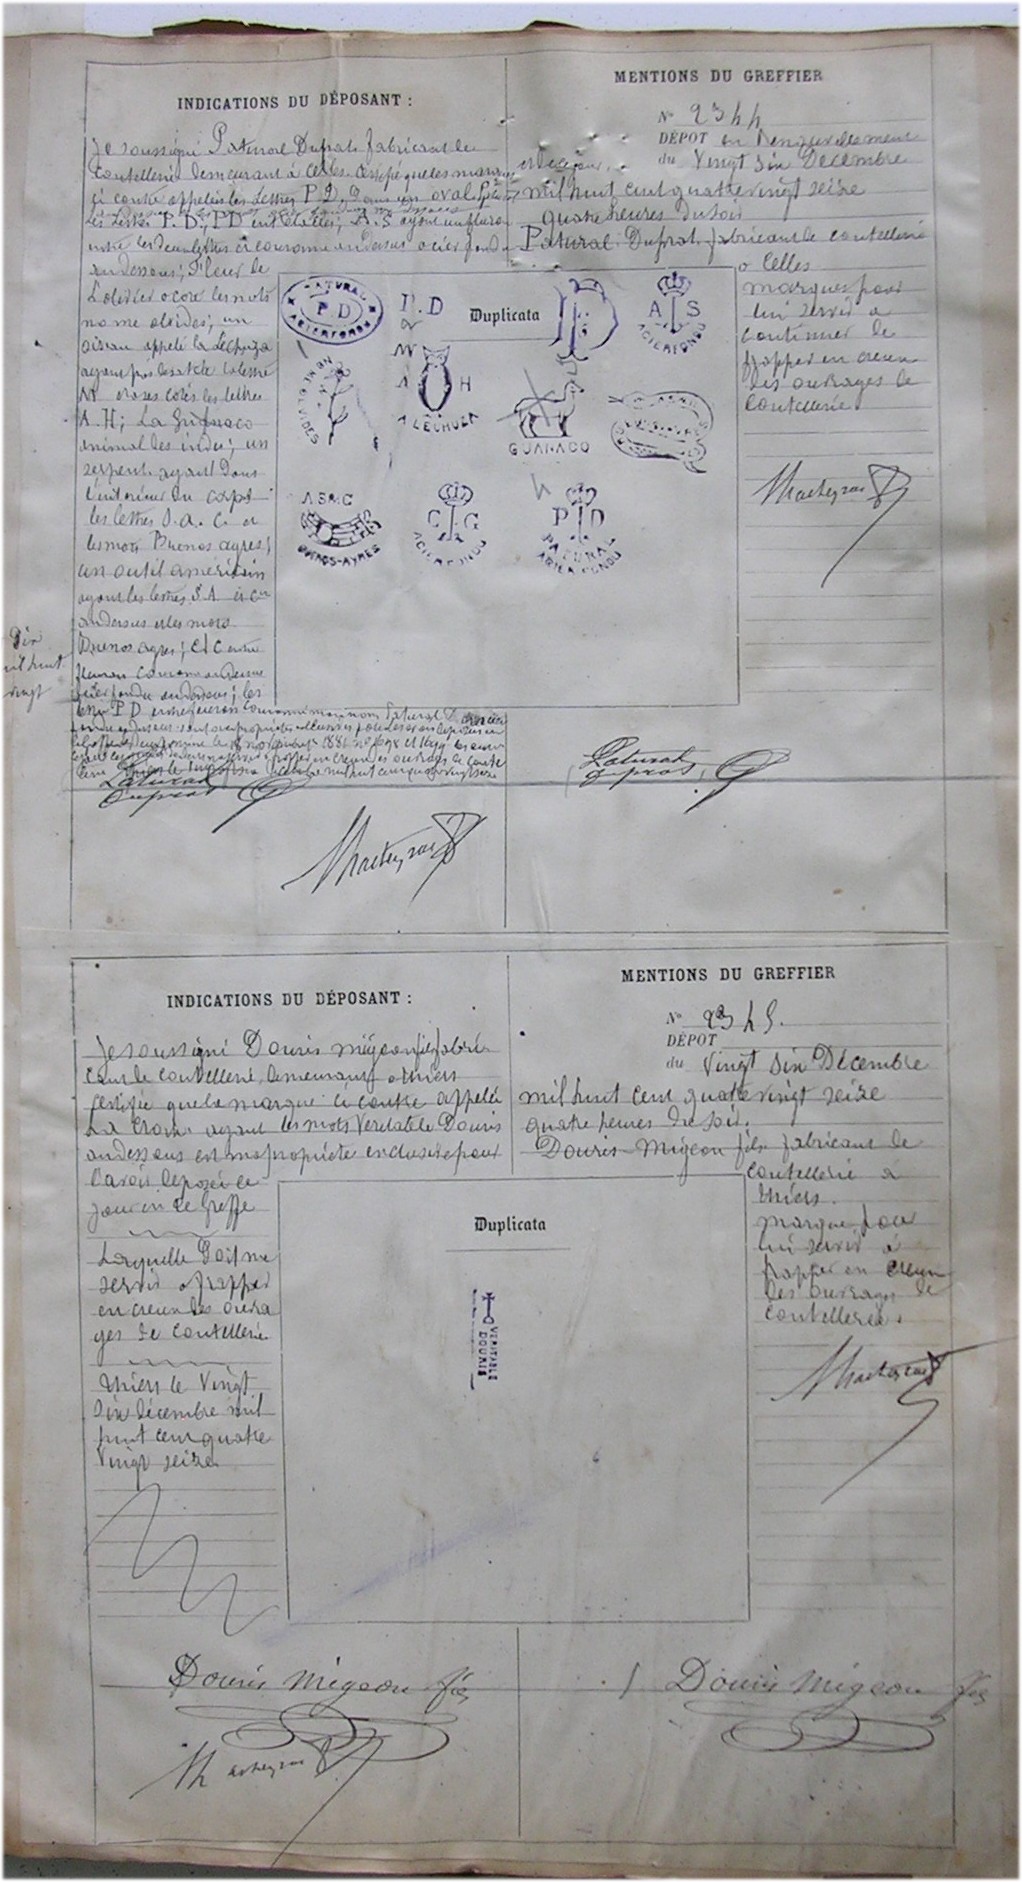 INDICATIONS DU DÉPOSANT :
Je soussigné Patural Duprat fabricant de
coutellerie demeurant à Celles certifie que les marques
ci contre appelées les Lettres P D, dans un oval
les Lettres P. D., PD entrelacées, A. S ayant un fleuron
entre les deux lettres et couronne au dessus acier fondu
au dessous; Fleur de
L'olivier ocore les mots
no me olvides; un
oiseau appelé la Lechuza
ayant
M et aux cotés les lettres
A. H; La Guanaco
animal des indes; un
serpent ayant dans
l'interieur du corps
les lettres S. a. C. et
les mots Buenos agres;
un outil américain
ayant les lettres S A et C
au dessus et les mots
Buenos agres; C C entre
fleuron couronne au dessus
acier fondu au dessous; les
lettres P D entre fleuron couronne mon nom Patural
Dix
mil huit
vingt
Patural
Duprat
Marheyras
MENTIONS DU GREFFIER
N° 2344
DÉPOT en Renouvellement
du Vingt six Decembre
mil huit cent quatre vingt seize
quatre heures du soir
Patural Duprat fabricant de coutellerie
a Celles
marques pour
lui servir a
continuer de
frapper en creux
des ouvrages de
coutellerie.
Marheyras
Patural
Duprat
Duplicata
PATURAL
P D
ACIER FONDU
P. D
PD
A S
ACIER FONDU
NO ME OLVIDES
M
A H
A LECHUCA
GUANACO
S A & C
BUENOS-AYRES
C G
ACIER FONDU
P D
PATURAL
ACIER FONDU
INDICATIONS DU DÉPOSANT :
Je soussigné Douris Migeon fils fabri-
cant de coutellerie, demeurant a thiers
certifie que la marque ci contre appelée
La Croix ayant les mots Veritable Douris
au dessous est ma propriété exclusive pour
l'avoir déposée ce
jour au Greffe
Laquelle Doit me
servir a frapper
en creux des ouvra
ges de coutellerie
thiers le Vingt
six décembre mil
huit cent quatre
vingt seize
Douris Migeon fils
Marheyras
MENTIONS DU GREFFIER
N° 2345.
DÉPOT
du Vingt six Décembre
mil huit cent quatre vingt seize
quatre heures du soir.
Douris-Migeon fils fabricant de
coutellerie a
thiers.
marque pour
lui servir à
frapper en creux
des ouvrages de
coutellerie.
Marheyras
Duplicata
VERITABLE
DOURIS
Douris Migeon fils